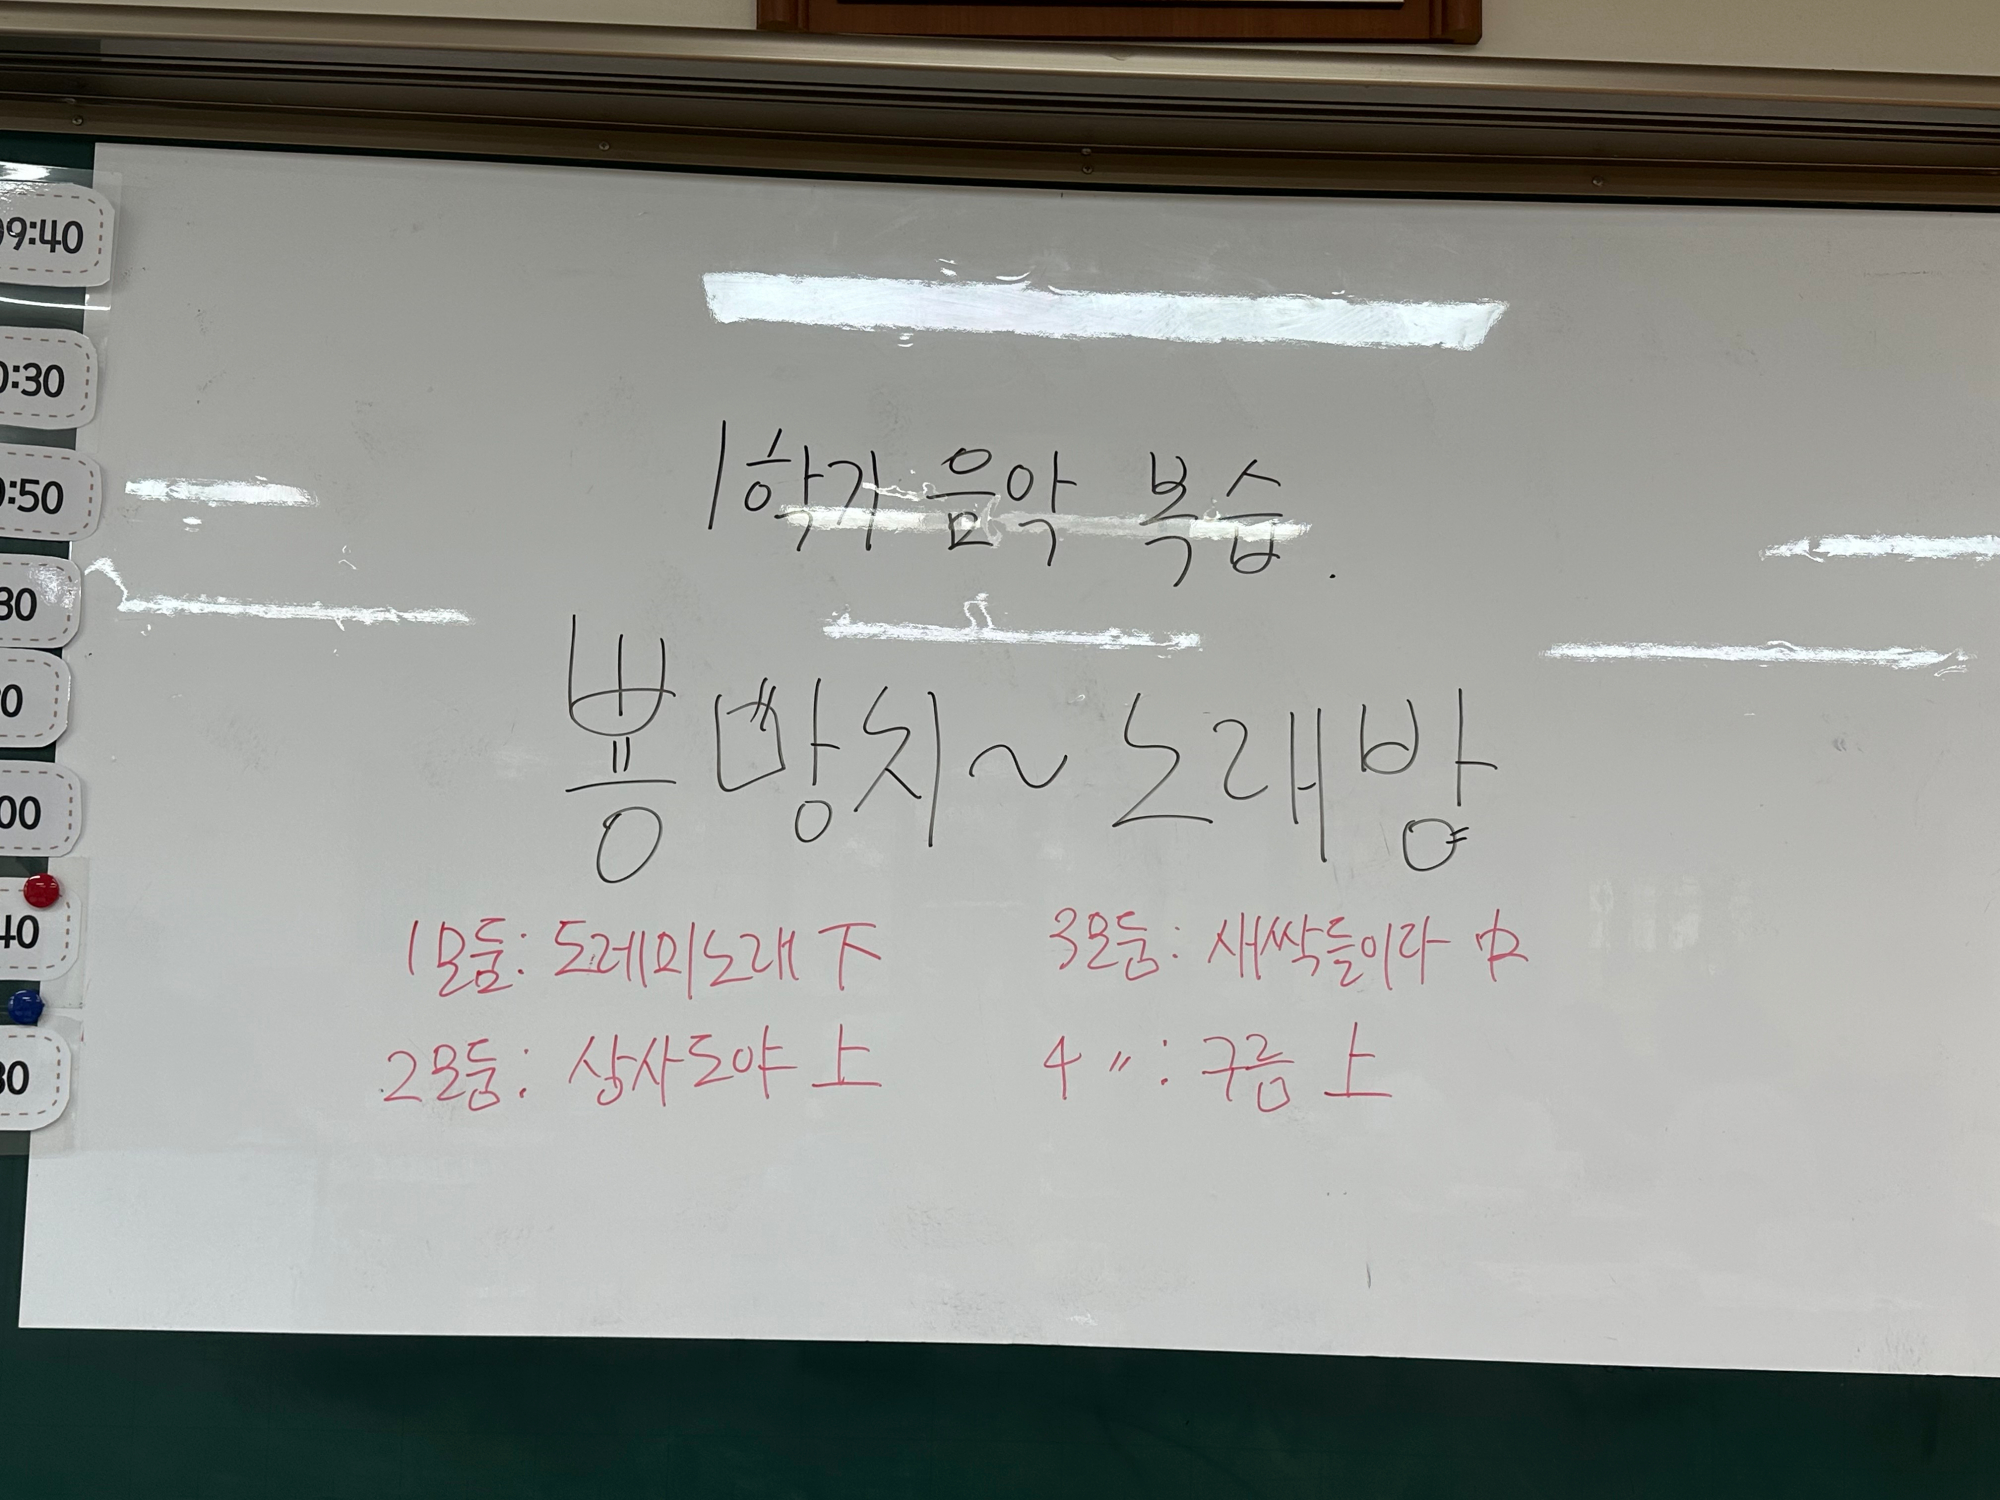 1학기 음악 복습.
뿅망치~노래방
1모둠: 도레미노래 下
2모둠: 상사도야 上
3모둠: 새싹들이다 中
4 〃: 구름 上
09:40
0:30
0:50
30
0
00
40
30